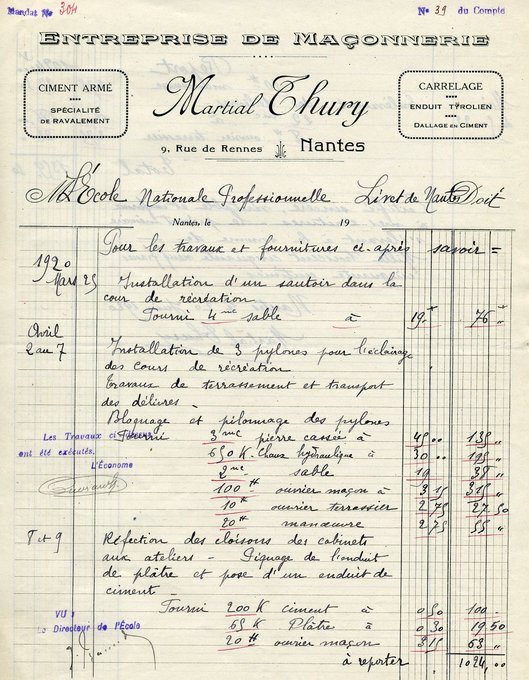 Mandat No 304
No 39 du Compte
ENTREPRISE DE MAÇONNERIE
CIMENT ARMÉ
SPÉCIALITÉ
DE RAVALEMENT
Martial Thury
9, Rue de Rennes Nantes
CARRELAGE
ENDUIT TYROLIEN
DALLAGE EN CIMENT
M L'École Nationale Professionnelle Livet de Nantes Doit
Nantes, le 19
Pour les travaux et fournitures ci-après savoir =
1920
Mars 25 Installation d'un sautoir dans la
cour de récréation
Fourni 4 mc sable à 19 76
Avril
2 au 7 Installation de 3 pylones pour l'éclairage
des cours de récréation
Travaux de terrassement et transport
des délivres
Bloquage et pilonnage des pylones
Fourni 3 mc pierre cassée à 45 00 135
650 K. Chaux hydraulique à 30 00 195
2 mc sable 19 38
100 H ouvrier maçon à 3 15 315
10 H ouvrier terrassier 2 75 27 50
20 H manœuvre 2 75 55
Les Travaux ci-dessus
ont été exécutés.
L'Économe
8 et 9 Réfection des cloisons des cabinets
aux ateliers - Piquage de l'enduit
de plâtre et pose d'un enduit de
ciment -
Fourni 200 K ciment à 0 50 100
65 K Plâtre à 0 30 19 50
20 H ouvrier maçon 3 15 63
à reporter 1024,00
VU :
Le Directeur de l'École